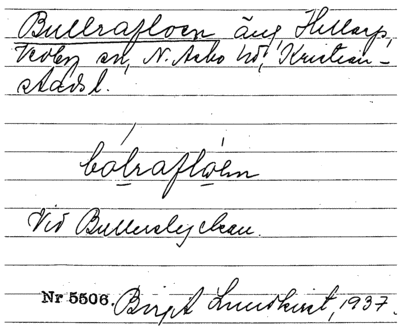 Bullrafloen äng, Hillarp,
Vedby sn, N. Åsbo hd, Kristian-
stads l.
bolrafloen
Vid Bullerslyckan.
Nr 5506. Birgit Lundkvist, 1937.